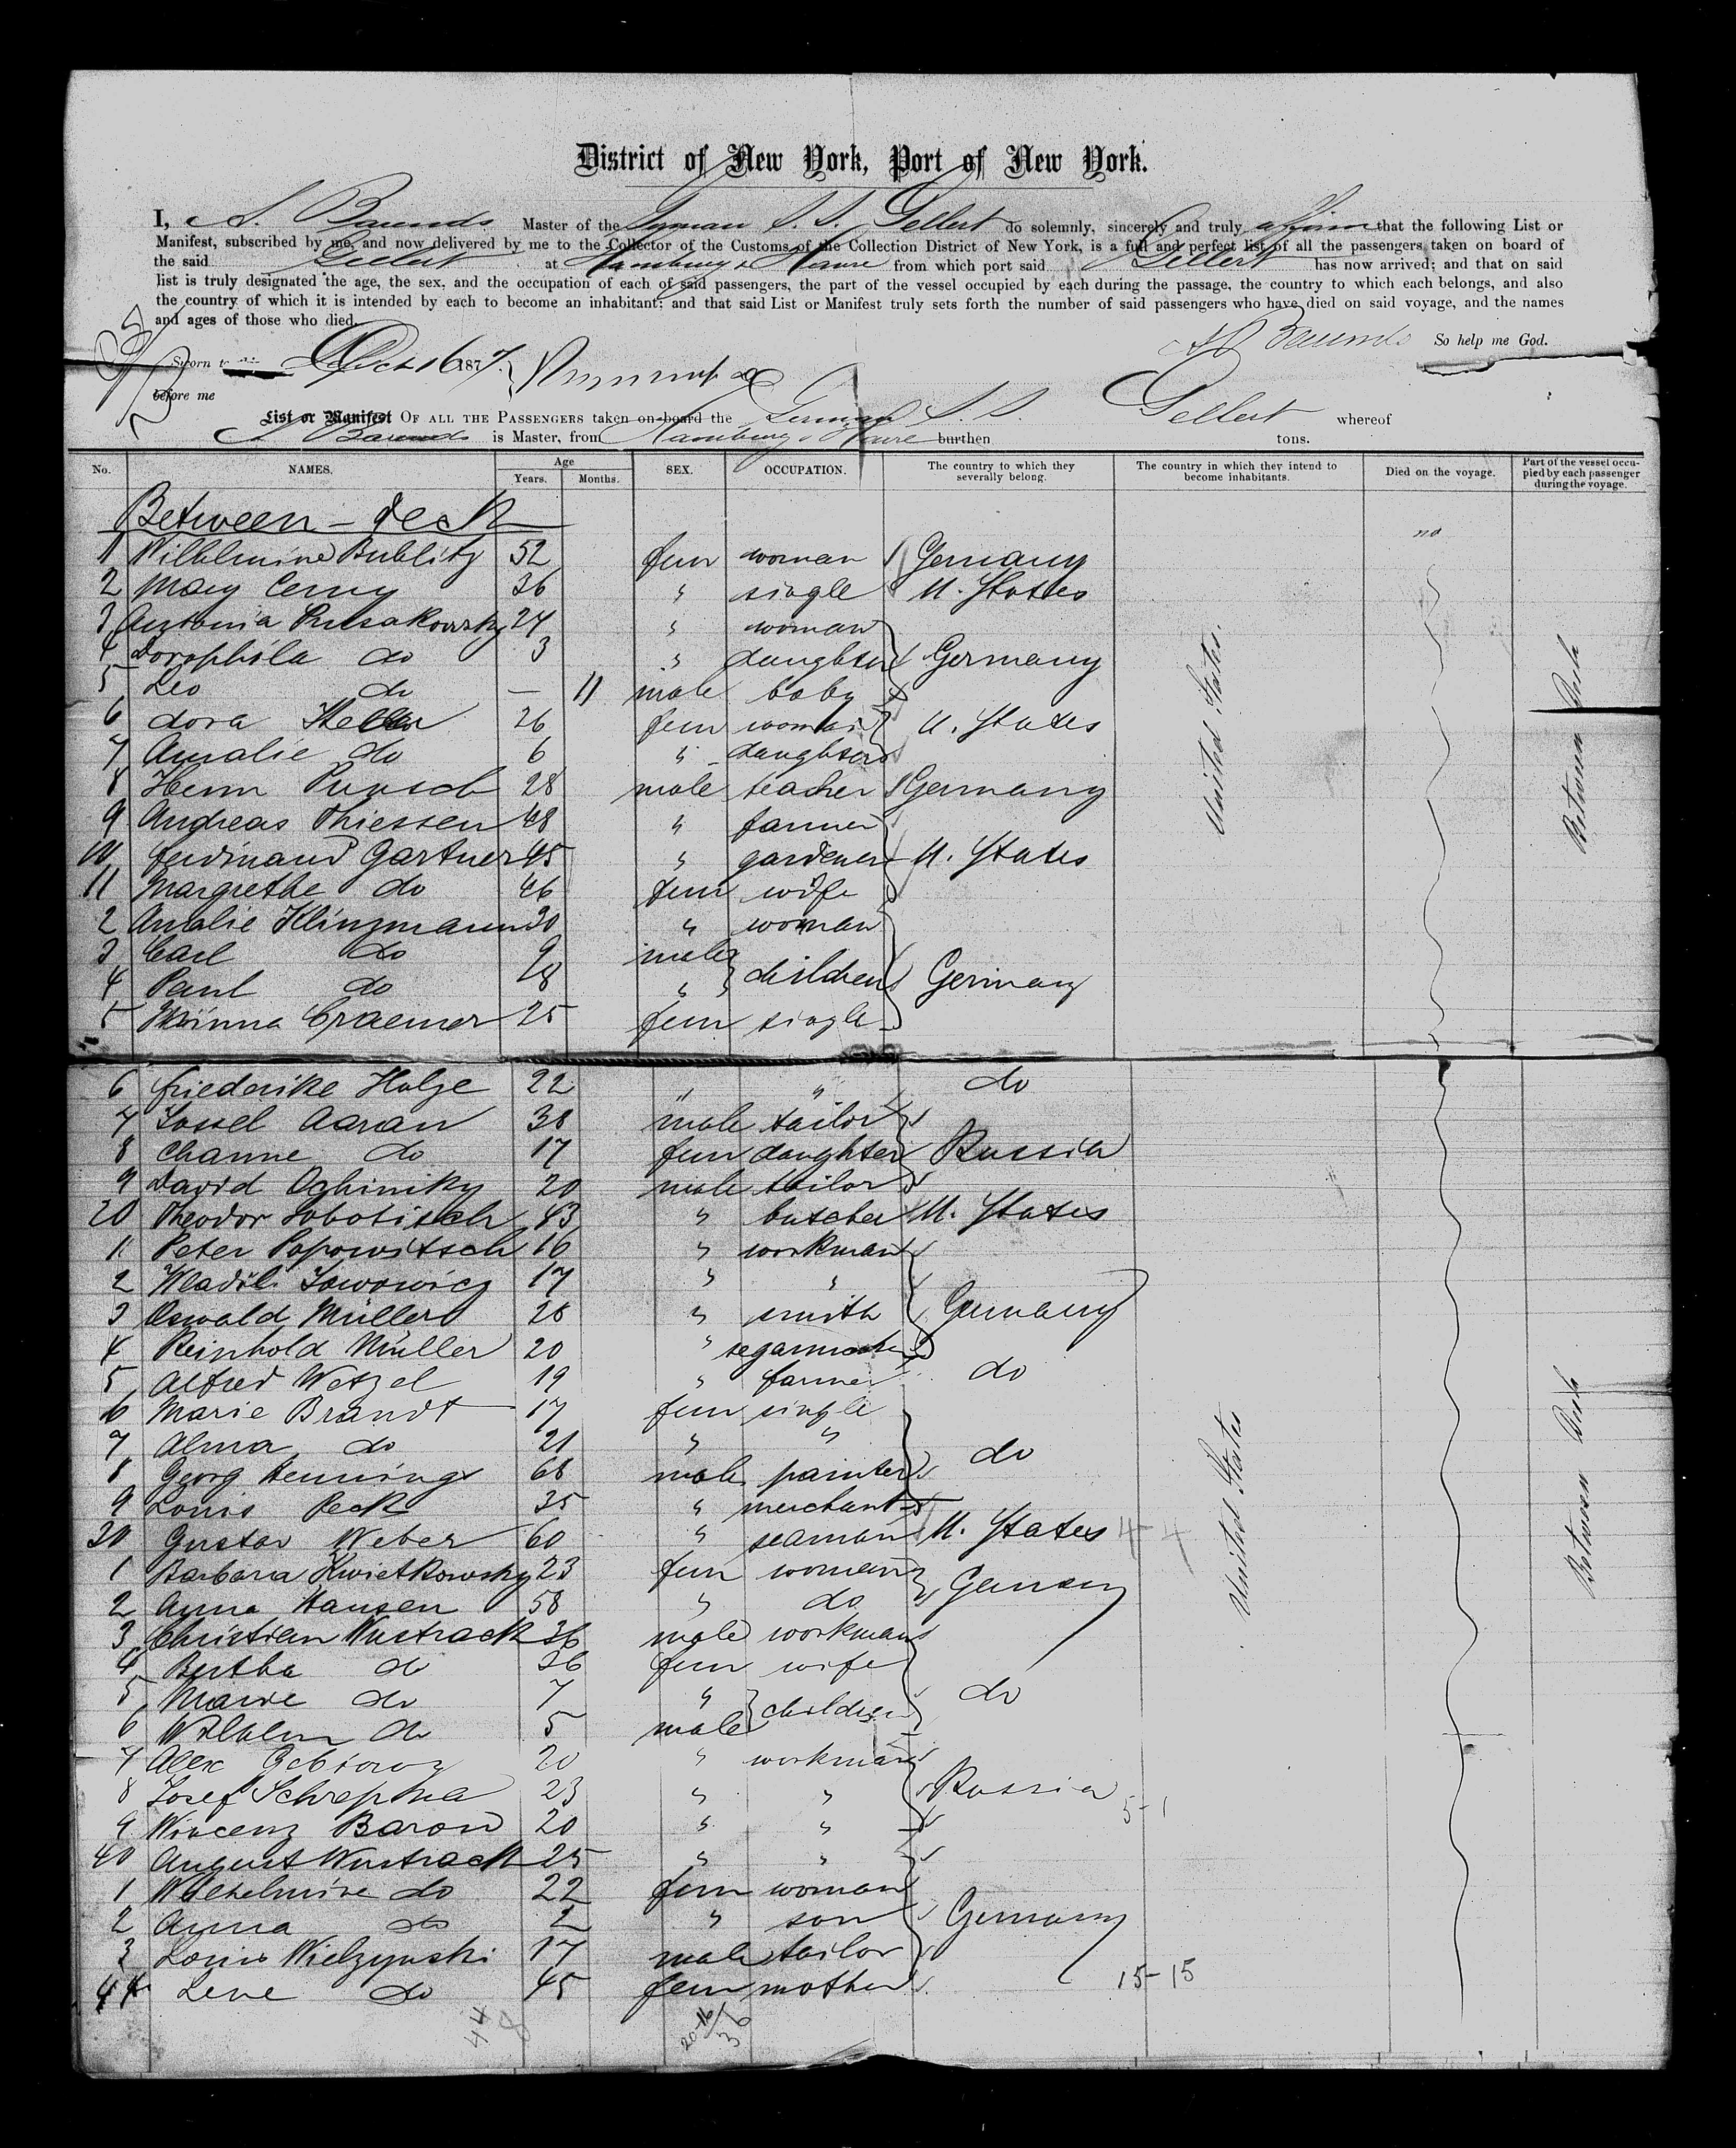 District of New York, Port of New York.
I, A. Barends Master of the German S. S. Gellert do solemnly, sincerely and truly affirm that the following List or
Manifest, subscribed by me, and now delivered by me to the Collector of the Customs of the Collection District of New York, is a full and perfect list of all the passengers taken on board of
the said Gellert at Hamburg & Havre from which port said Gellert has now arrived; and that on said
list is truly designated the age, the sex, and the occupation of each of said passengers, the part of the vessel occupied by each during the passage, the country to which each belongs, and also
the country of which it is intended by each to become an inhabitant; and that said List or Manifest truly sets forth the number of said passengers who have died on said voyage, and the names
and ages of those who died.
So help me God.
Sworn to 16 187
before me
List or Manifest OF ALL THE PASSENGERS taken on board the German S. S. Gellert whereof
is Master, from Hamburg & Havre burthen tons.
No. NAMES. Age Years. Months. SEX. OCCUPATION. The country to which they severally belong. The country in which they intend to become inhabitants. Died on the voyage. Part of the vessel occupied by each passenger during the voyage.
Between-deck
no
1 Wilhelmine Bublitz 52 fem woman Germany
2 Mary Cerny 36 " single U. States
3 Antonia 24 " woman
4 Dorophila do 3 " daughter Germany
5 Leo do — 11 male baby
6 dora Heller 26 fem woman U. States
7 Amalie do 6 " daughter
8 Herm 28 male teacher Germany
9 Andreas Thiessen 48 " farmer
10 ferdinand Gartner 45 " gardener U. States
11 Margrethe do 46 fem wife
2 Amalie Klinzmann 30 " woman
3 Carl do 9 male
4 Paul do " children Germany
5 Minna Craemer 25 fem single
United States.
Between Deck
6 friederike Holze 22 " " do
7 Jossel Aaran 38 male tailor
8 Channe do 17 fem daughter Russia
9 David 20 male tailor
20 Theodor Sobotisch 43 " butcher U. States
1 Peter Popowitsch 16 " workman
2 Wladil 17 " "
3 Oswald Müller 28 " smith Germany
4 Reinhold Müller 20 "
5 Alfred Wetzel 19 " farmer do
6 Marie Brandt 17 fem single
7 Alma do 21 " " do
8 Georg Hennings 68 male painter
9 Louis Peck 35 " merchant
30 Gustav Weber 60 " seaman U. States 4-4
1 Barbara Kwietkowsky 23 fem woman Germany
2 Anna Hansen 58 " do
3 Christian Wustrack 36 male workman
4 Bertha do 36 fem wife
5 Marie do 7 " children do
6 Wilhelm do 5 male
7 Alex 20 " workman
8 Josef 23 " " Russia 5-1
9 Wincenz Baron 20 " "
40 August Wustrack 25 " "
1 Wilhelmine do 22 fem woman
2 Anna do 2 " son Germany
3 Louis Wielzynski 17 male tailor
44 Lene do 45 fem mother 15-15
United States
Between Deck
44
36